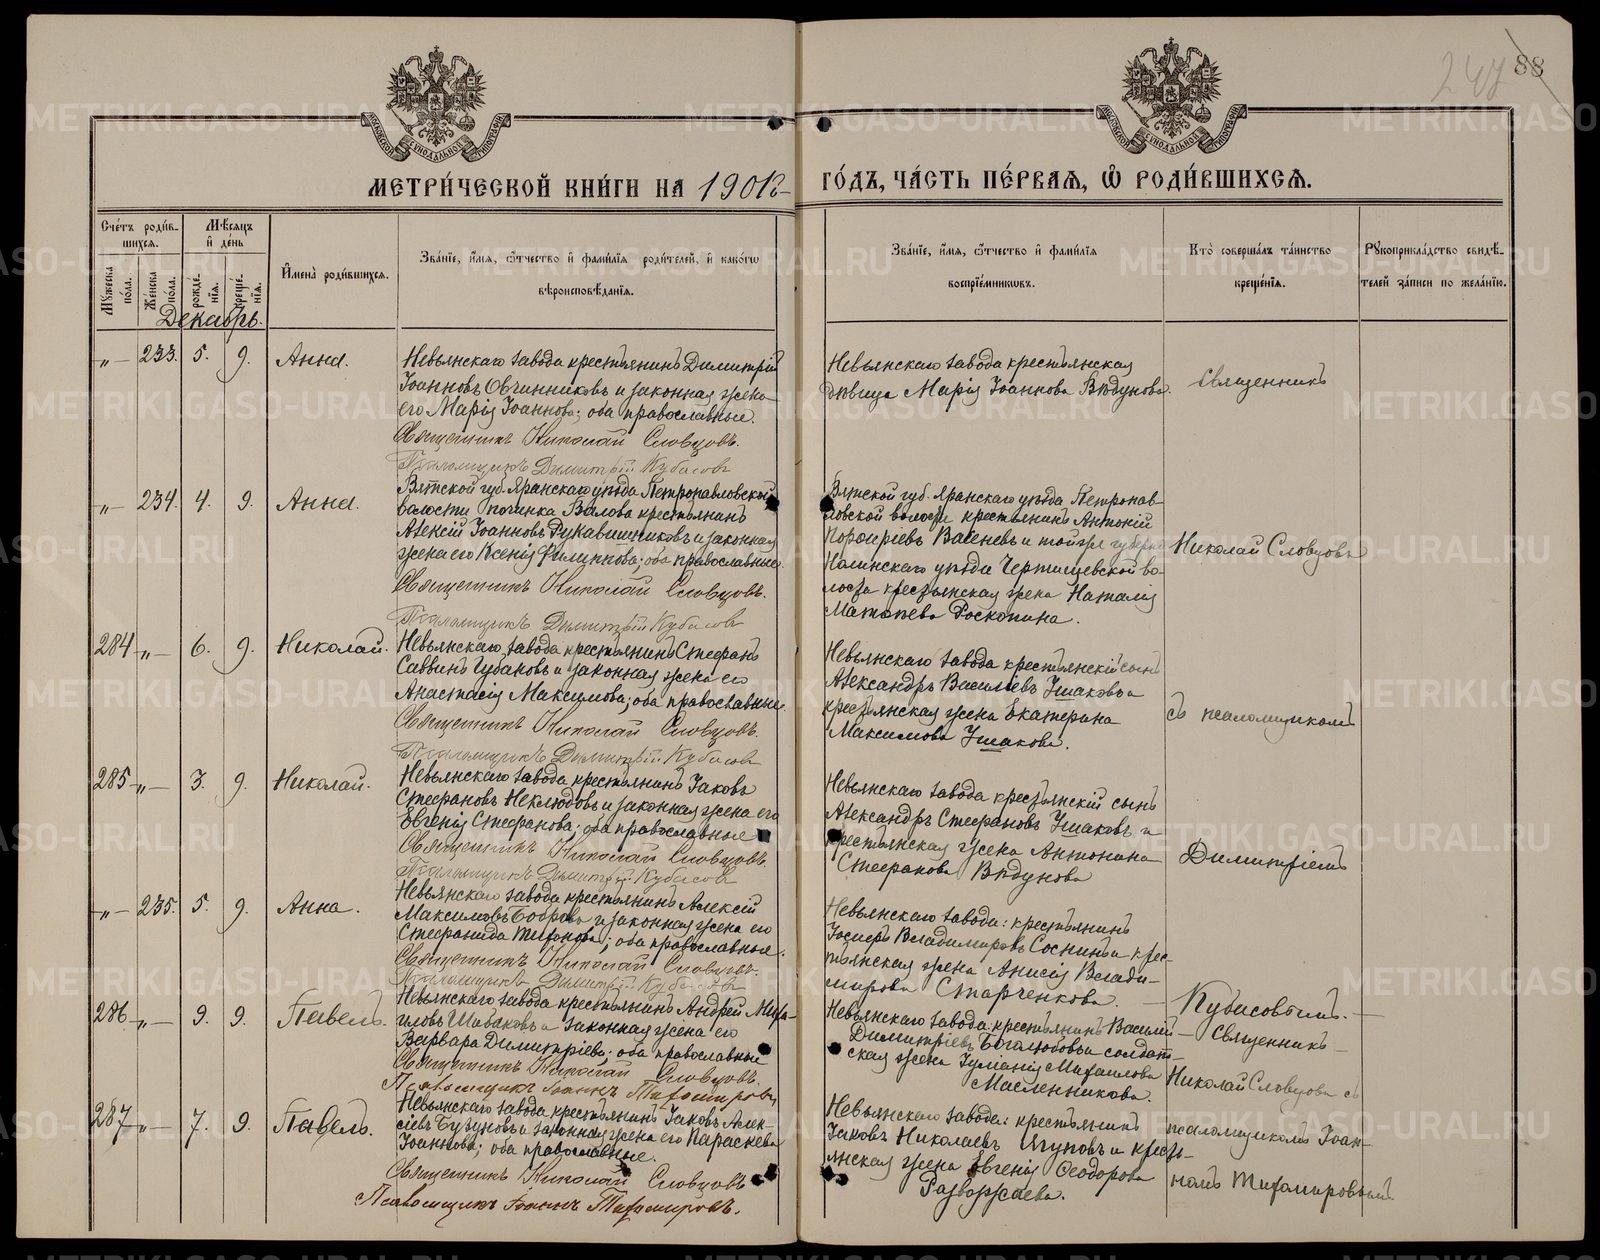 247 88
МЕТРИ́ЧЕСКОЙ КНИ́ГИ НА 1901 ГО́ДЪ, ЧА́СТЬ ПЕ́РВАЯ, Ѡ РОДИ́ВШИХСЯ.
Сче́тъ роди́в-
шихся.
Му́жеска по́ла.
Же́нска по́ла.
Мѣ́сяцъ
и́ де́нь
рожде́-
нія.
креще́-
нія.
И҆мена̀ роди́вшихся.
Зва́ніе, и҆́мя, ѻ҆́тчество и҆ фами́лія роди́телей, и҆ како́гѡ
вѣроисповѣ́данія.
Зва́ніе, и҆́мя, ѻ҆́тчество и҆ фами́лія
воспріе́мниковъ.
Кто̀ соверша́лъ та́инство
креще́нія.
Рꙋкоприкла́дство свидѣ́-
телей за́писи по жела́нію.
Декабрь.
„ — 233. 5. 9. Анна.
Невьянскаго завода крестьянинъ Димитрій
Іоанновъ Овчинниковъ и законная жена
его Марія Іоаннова; оба православные.
Священникъ Николай Словцовъ.
Псаломщикъ Димитрій Кубасовъ
Невьянскаго завода крестьянская
дѣвица Марія Іоаннова Вѣдунова.
Священникъ
„ — 234. 4. 9. Анна.
Вятской губ. Яранскаго уѣзда Петропавловской
волости починка Валова крестьянинъ
Алексій Іоанновъ Рукавишниковъ и законная
жена его Ксенія Филиппова; оба православные.
Священникъ Николай Словцовъ.
Псаломщикъ Димитрій Кубасовъ
Вятской губ. Яранскаго уѣзда Петропав-
ловской волости крестьянинъ Антоній
Порфирьевъ Васеневъ и той же губерн.
Нолинскаго уѣзда Чертищевской во-
лости крестьянская жена Наталія
Матвѣева Роскопина.
Николай Словцовъ
284 „ — 6. 9. Николай.
Невьянскаго завода крестьянинъ Стефанъ
Саввинъ Губановъ и законная жена его
Анастасія Максимова; оба православные.
Священникъ Николай Словцовъ.
Псаломщикъ Димитрій Кубасовъ
Невьянскаго завода крестьянскій сынъ
Александръ Васильевъ Ушаковъ и
крестьянская жена Екатерина
Максимова Ушакова.
съ псаломщикомъ
285 „ — 3. 9. Николай.
Невьянскаго завода крестьянинъ Іаковъ
Стефановъ Неклюдовъ и законная жена его
Евгенія Стефанова; оба православные
Священникъ Николай Словцовъ.
Псаломщикъ Димитрій Кубасовъ
Невьянскаго завода крестьянскій сынъ
Александръ Стефановъ Ушаковъ и
крестьянская жена Антонина
Стефанова Вѣдунова
Димитріемъ
„ — 235. 5. 9. Анна.
Невьянскаго завода крестьянинъ Алексій
Максимовъ Бобровъ и законная жена его
Стефанида Тихонова; оба православные.
Священникъ Николай Словцовъ.
Псаломщикъ Димитрій Кубасовъ
Невьянскаго завода: крестьянинъ
Іосифъ Владимировъ Соснинъ и крес-
тьянская жена Анисія Влади-
мирова Старченкова. —
Кубасовымъ. —
286 „ — 9. 9. Павелъ.
Невьянскаго завода крестьянинъ Андрей Миха-
иловъ Шибаковъ и законная жена его
Варвара Димитріева; оба православные
Священникъ Николай Словцовъ.
Псаломщикъ Іоаннъ Тихомировъ
Невьянскаго завода: крестьянинъ Василій
Димитріевъ Боголюбовъ и солдат-
ская жена Іуліанія Михаилова
Масленникова.
— Священникъ —
Николай Словцовъ съ
287 „ — 7. 9. Павелъ.
Невьянскаго завода крестьянинъ Іаковъ Алек-
сіевъ Бузуновъ и законная жена его Параскева
Іоаннова; оба православные.
Священникъ Николай Словцовъ
Псаломщикъ Іоаннъ Тихомировъ.
Невьянскаго завода: крестьянинъ
Іаковъ Николаевъ Шуповъ и кресть-
янская жена Евгенія Ѳеодорова
Разворжаева.
псаломщикомъ Іоан-
номъ Тихомировымъ.
METRIKI.GASO-URAL.RU